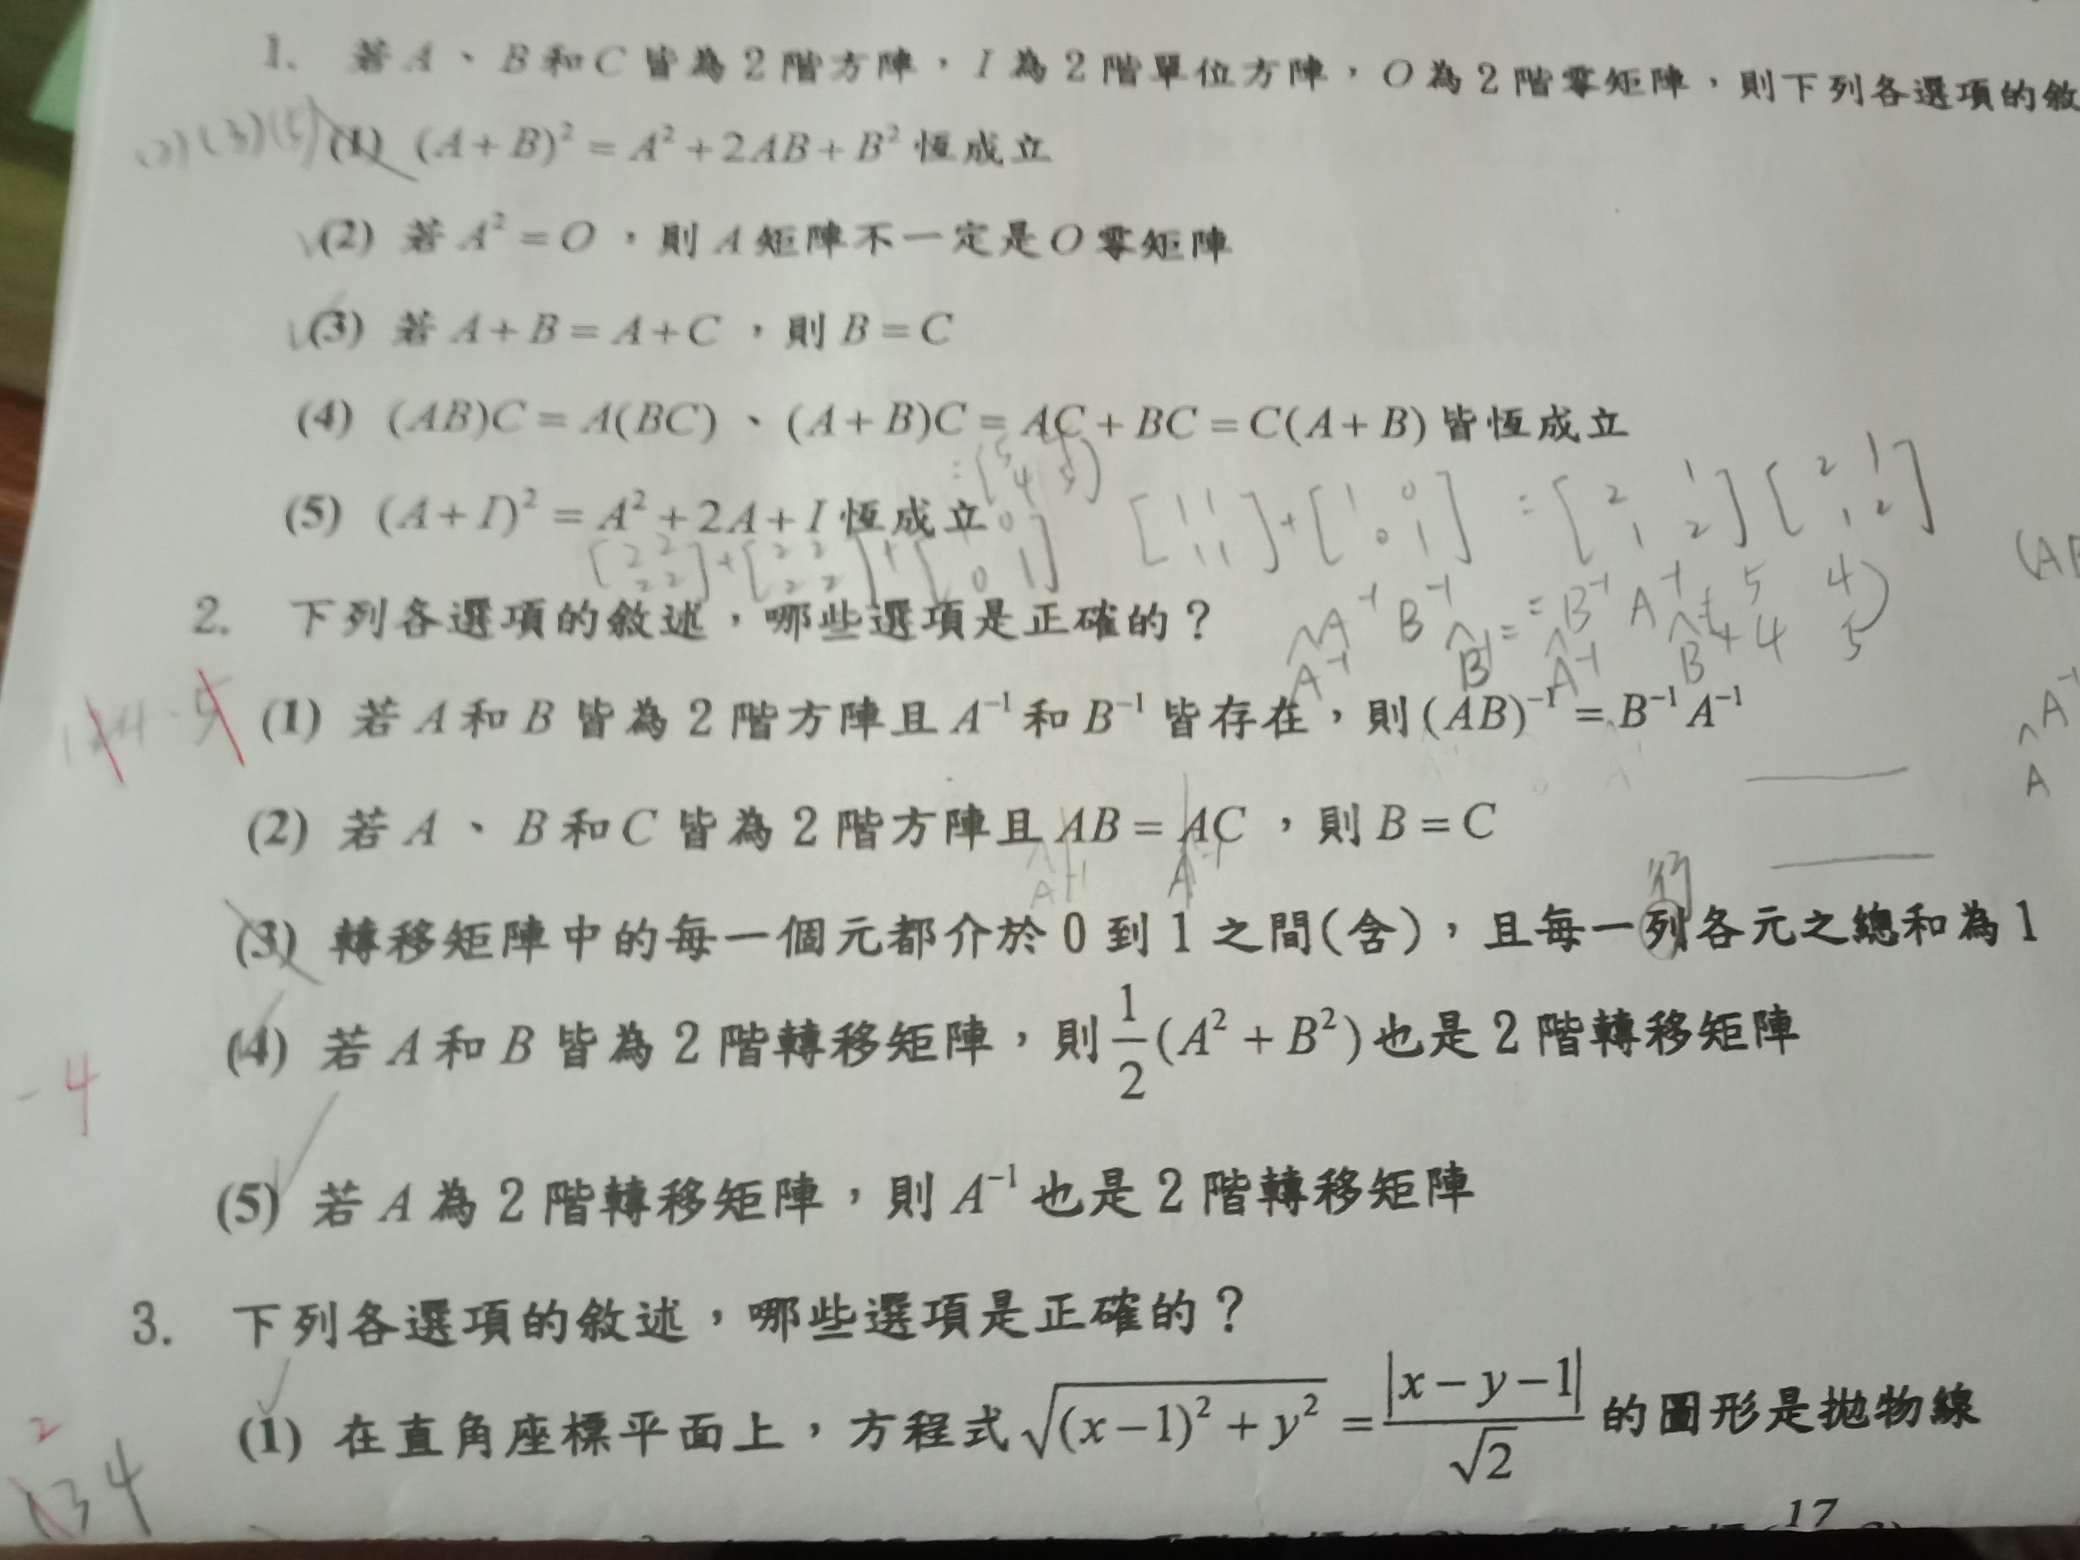 1. 若 A、B 和 C 皆為 2 階方陣，I 為 2 階單位方陣，O 為 2 階零矩陣，則下列各選項的敘
(3)(5) (1) (A+B)² = A² + 2AB + B² 恆成立
(2) 若 A² = O，則 A 矩陣不一定是 O 零矩陣
(3) 若 A+B = A+C，則 B = C
(4) (AB)C = A(BC)、(A+B)C = AC + BC = C(A+B) 皆恆成立
(5) (A+I)² = A² + 2A + I 恆成立
[1 1 1 1] + [1 0 0 1] = [2 1 1 2] [2 1 1 2]
[2 2 2 2] + [2 2 2 2] + [1 0 0 1]
2. 下列各選項的敘述，哪些選項是正確的？
(1) 若 A 和 B 皆為 2 階方陣且 A⁻¹ 和 B⁻¹ 皆存在，則 (AB)⁻¹ = B⁻¹A⁻¹
(2) 若 A、B 和 C 皆為 2 階方陣且 AB = AC，則 B = C
A⁻¹ A⁻¹
行
(3) 轉移矩陣中的每一個元都介於 0 到 1 之間(含)，且每一列各元之總和為 1
(4) 若 A 和 B 皆為 2 階轉移矩陣，則 1/2 (A² + B²) 也是 2 階轉移矩陣
-4
(5) 若 A 為 2 階轉移矩陣，則 A⁻¹ 也是 2 階轉移矩陣
3. 下列各選項的敘述，哪些選項是正確的？
(1) 在直角座標平面上，方程式 √((x-1)² + y²) = |x-y-1|/√2 的圖形是拋物線
2
134
17